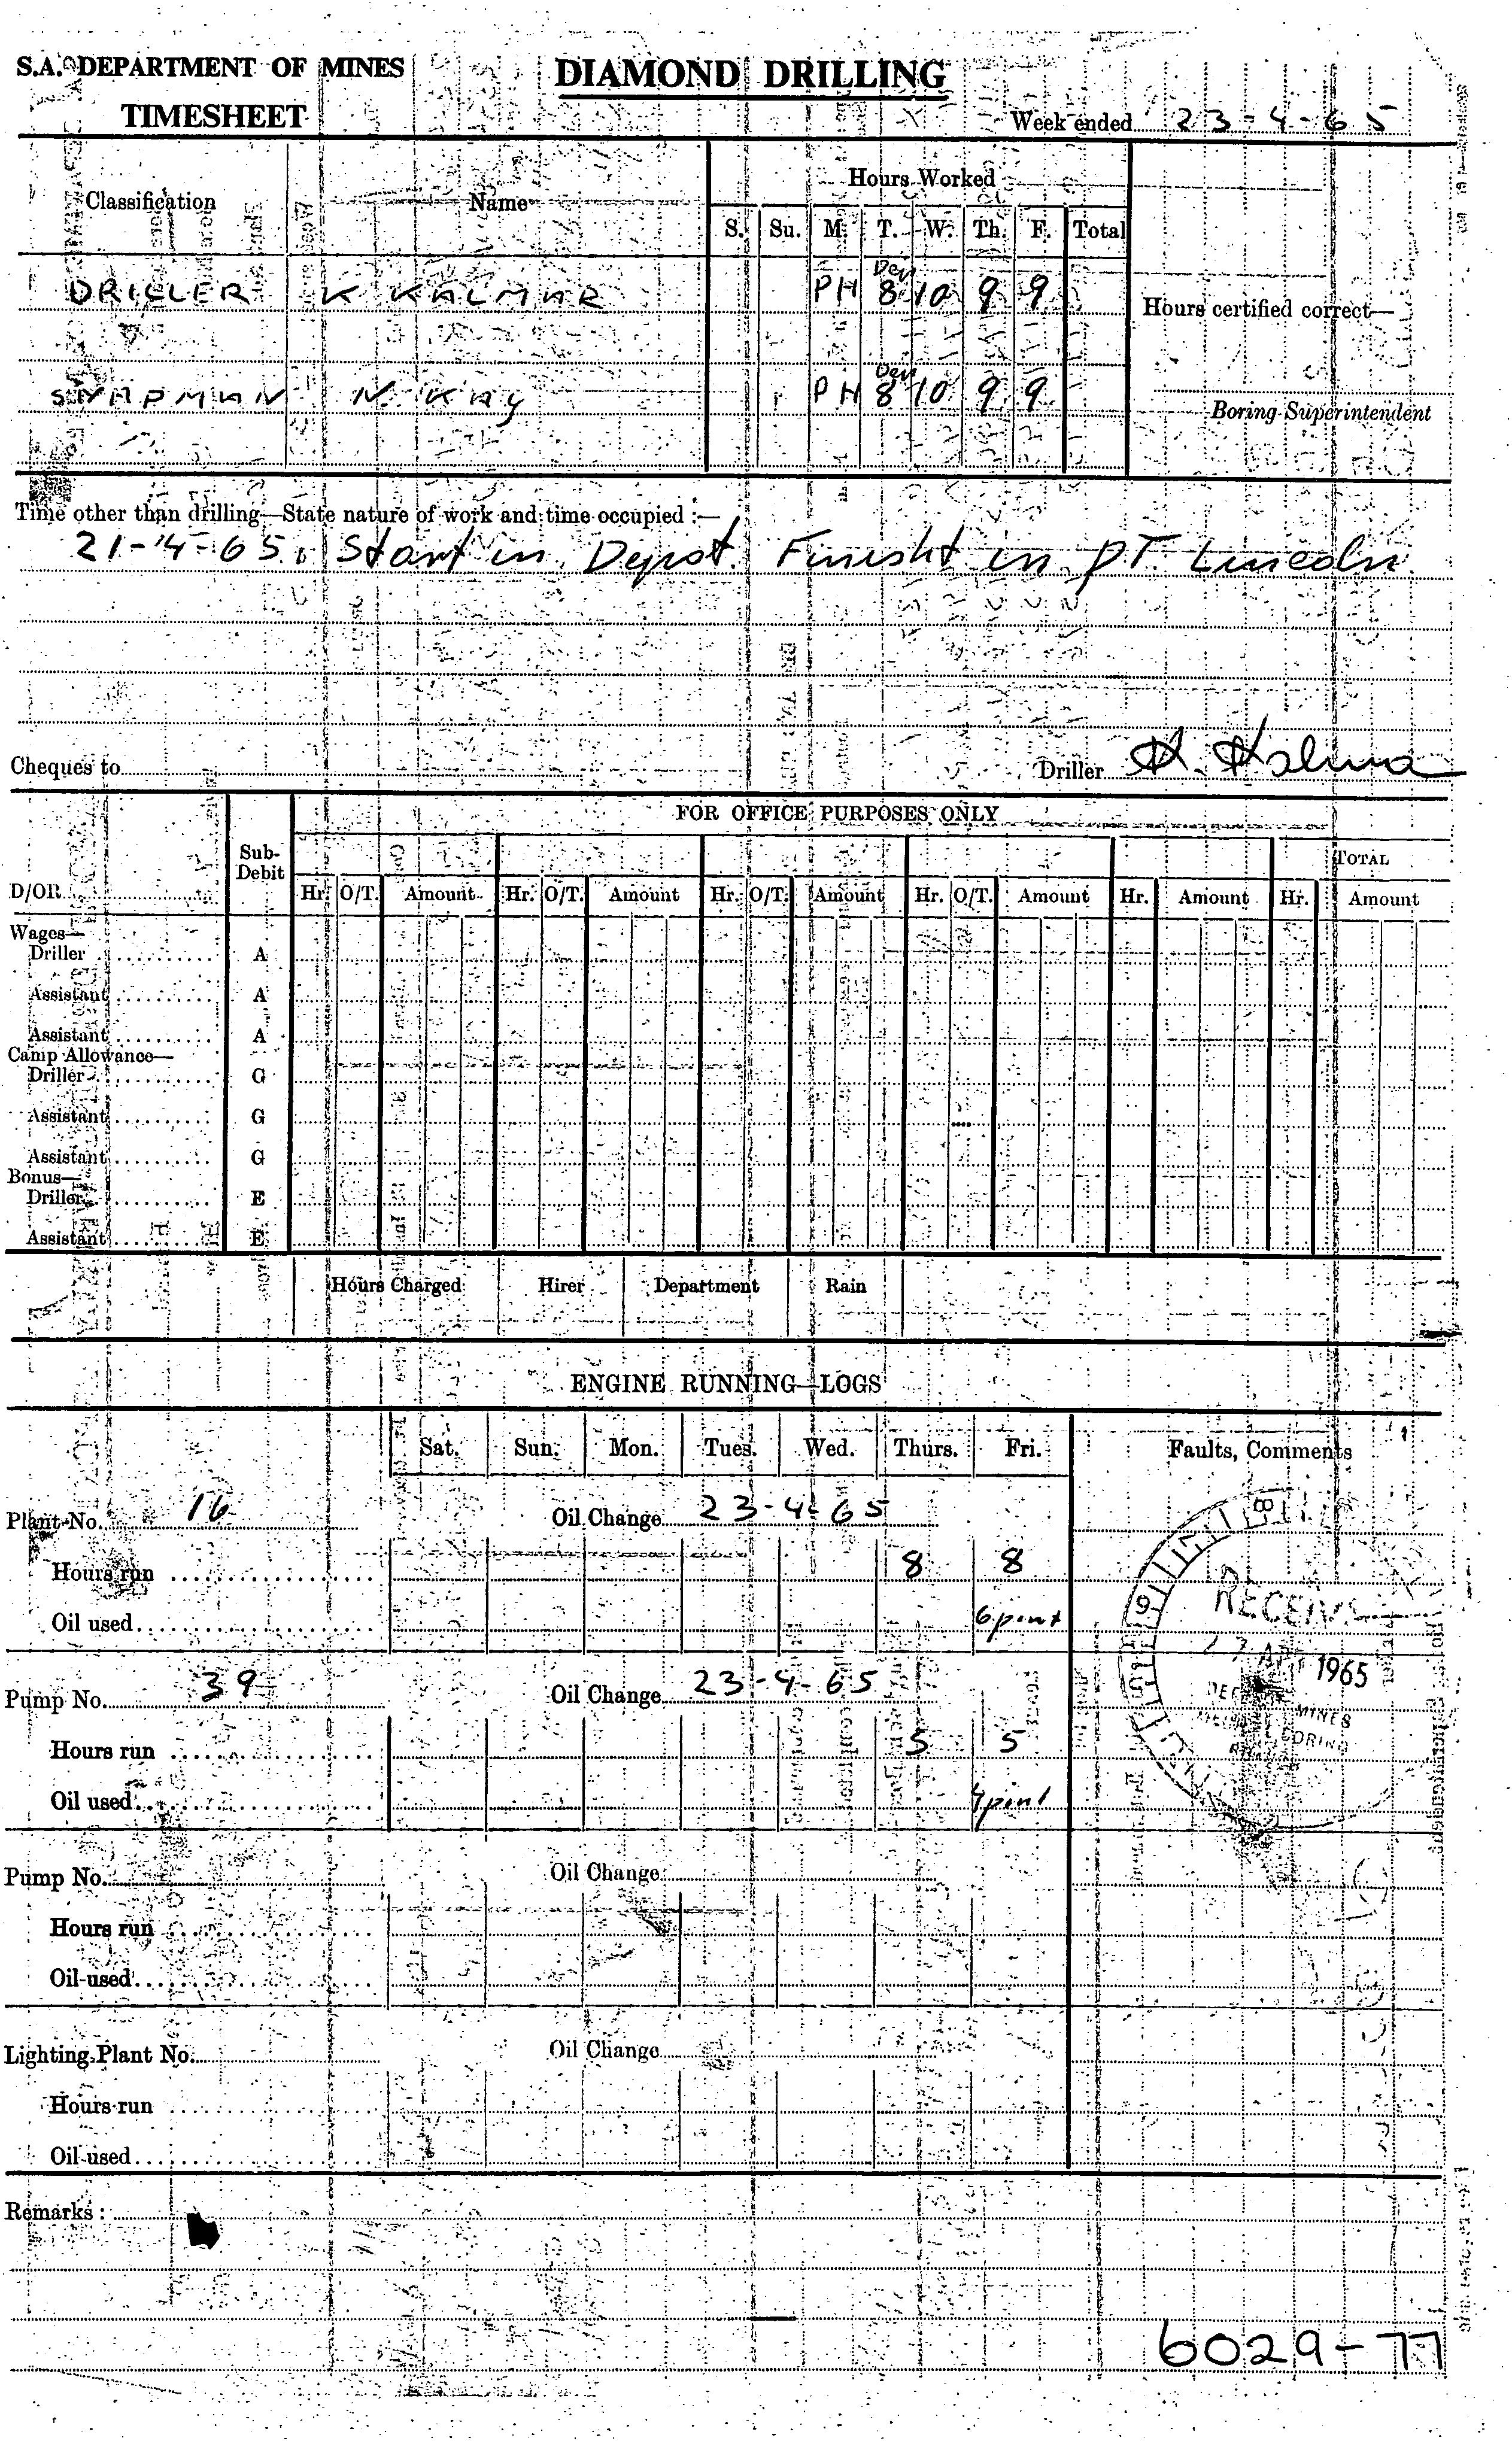 S.A. DEPARTMENT OF MINES
DIAMOND DRILLING
TIMESHEET
Week ended 23-4-65
Classification Name Hours Worked
S. Su. M. T. W. Th. F. Total
DRILLER K KALMAR PH Dep 8 10 9 9
Hours certified correct—
SHAPMAN N. Kay PH Dep 8 10 9 9
Boring Superintendent
Time other than drilling—State nature of work and time occupied :—
21-4-65. Start in Depot. Finisht in PT. Lincoln
Cheques to
Driller K. Kalmar
FOR OFFICE PURPOSES ONLY
D/OR Sub-Debit
TOTAL
Hr. O/T. Amount Hr. O/T. Amount Hr. O/T. Amount Hr. O/T. Amount Hr. Amount Hr. Amount
Wages—
Driller A
Assistant A
Assistant A
Camp Allowance—
Driller G
Assistant G
Assistant G
Bonus—
Driller E
Assistant E
Hours Charged Hirer Department Rain
ENGINE RUNNING LOGS
Sat. Sun. Mon. Tues. Wed. Thurs. Fri. Faults, Comments
Plant No. 16 Oil Change 23-4-65
Hours run 8 8
Oil used 6 pint
RECEIVED
1965
MINES
Pump No. 39 Oil Change 23-4-65
Hours run 5 5
Oil used 4 pint
Pump No. Oil Change
Hours run
Oil used
Lighting Plant No. Oil Change
Hours run
Oil used
Remarks :
6029-77